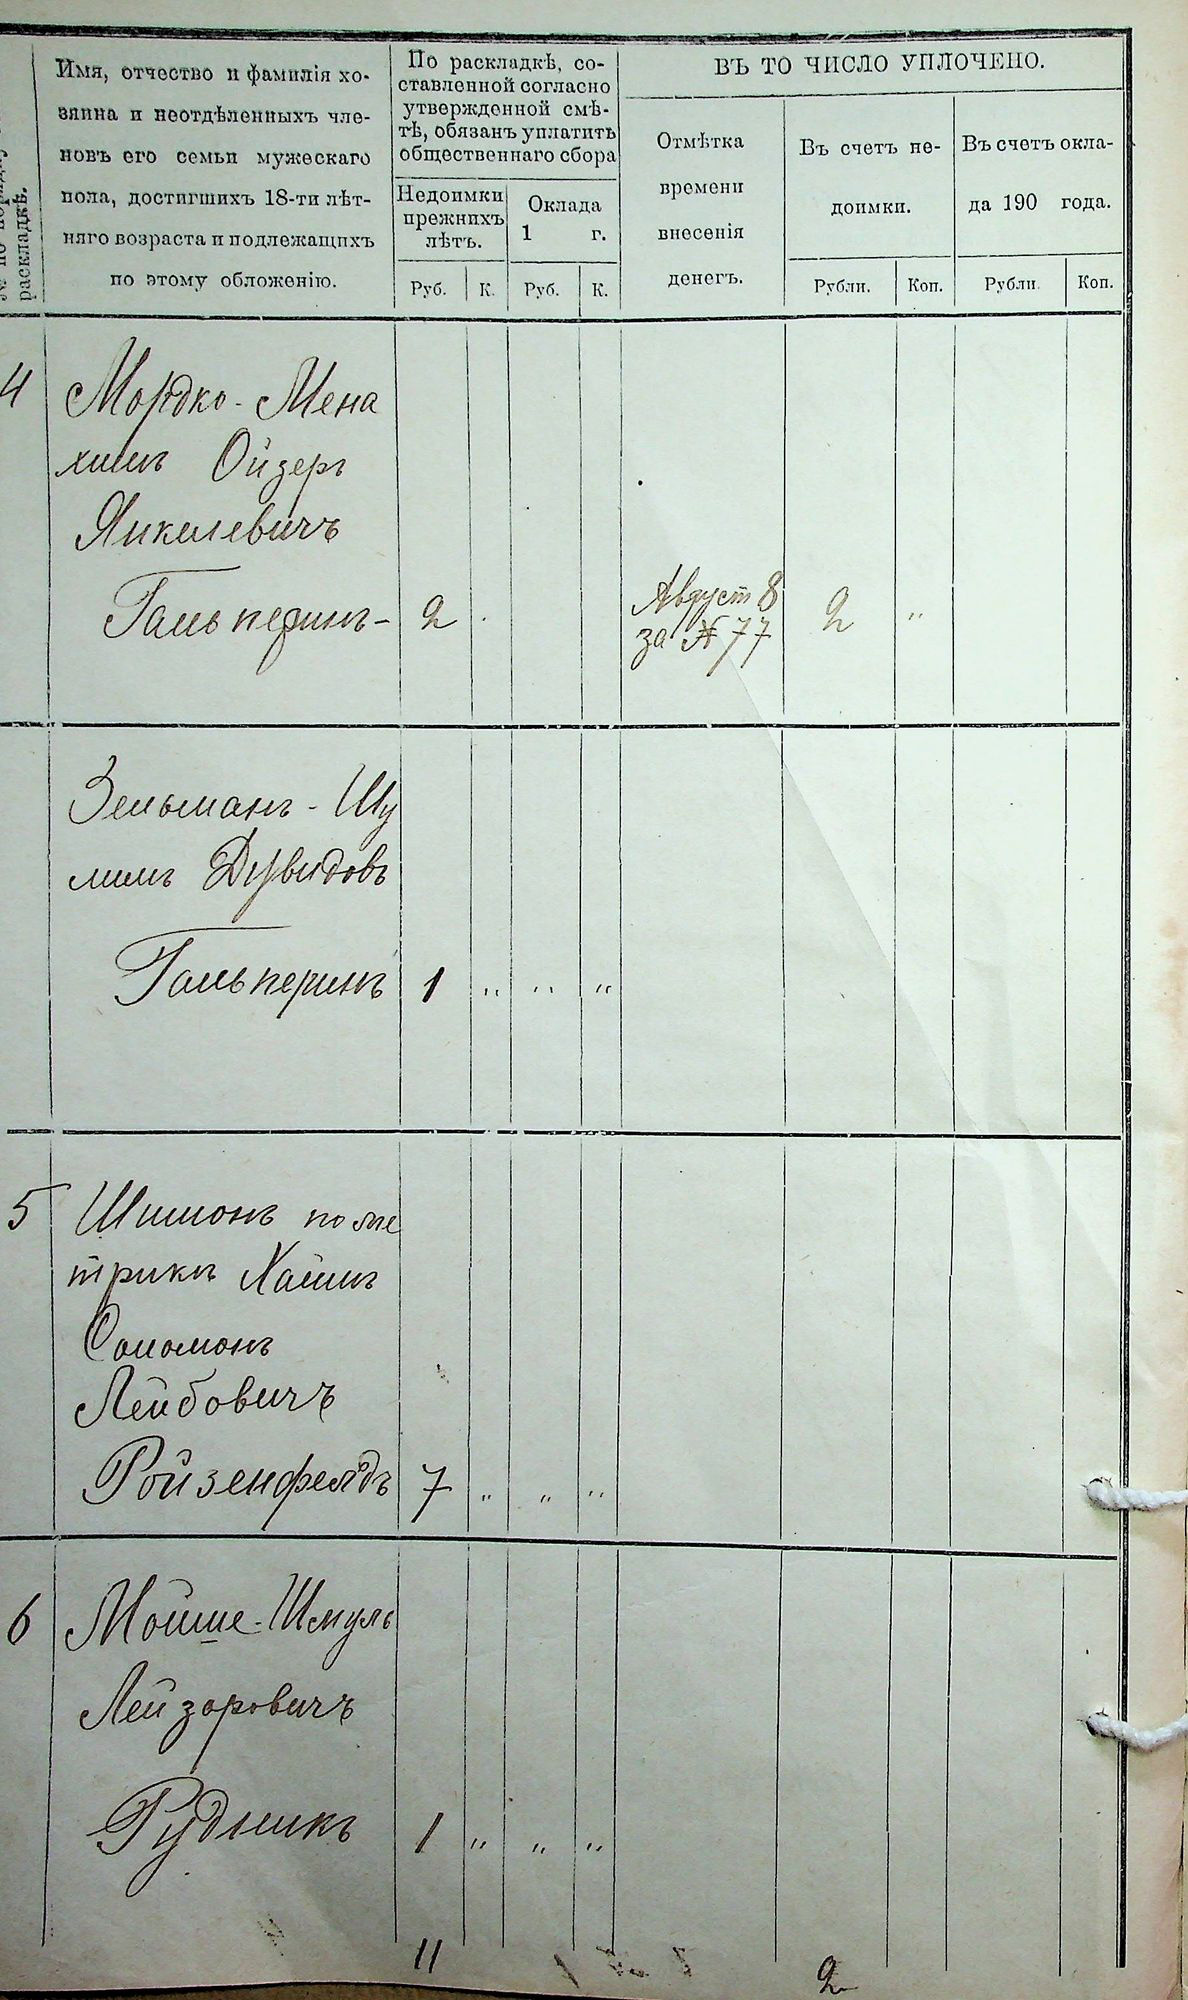 № по порядку
раскладкѣ.
Имя, отчество и фамилія хо-
зяина и неотдѣленныхъ чле-
новъ его семьи мужескаго
пола, достигшихъ 18-ти лѣт-
няго возраста и подлежащихъ
по этому обложенію.
По раскладкѣ, со-
ставленной согласно
утвержденной смѣ-
тѣ, обязанъ уплатить
общественнаго сбора
Недоимки
прежнихъ
лѣтъ.
Оклада
1 г.
Руб. К. Руб. К.
ВЪ ТО ЧИСЛО УПЛОЧЕНО.
Отмѣтка
времени
внесенія
денегъ.
Въ счетъ не-
доимки.
Въ счетъ окла-
да 190 года.
Рубли. Коп. Рубли. Коп.
4 Мордко-Мена
химъ Ойзеръ
Янкелевичъ
Гальперинъ - 2
Август 8
за № 77
2 "
Зельманъ-Шу
лимъ Дувидовъ
Гальперинъ 1 " " "
5 Шимонъ по ме
трикъ Хаимъ
Соломонъ
Лейбовичъ
Ройзенфельдъ 7 " " "
6 Мойше-Шмуль
Лейзоровичъ
Рудникъ 1 " " "
11 2